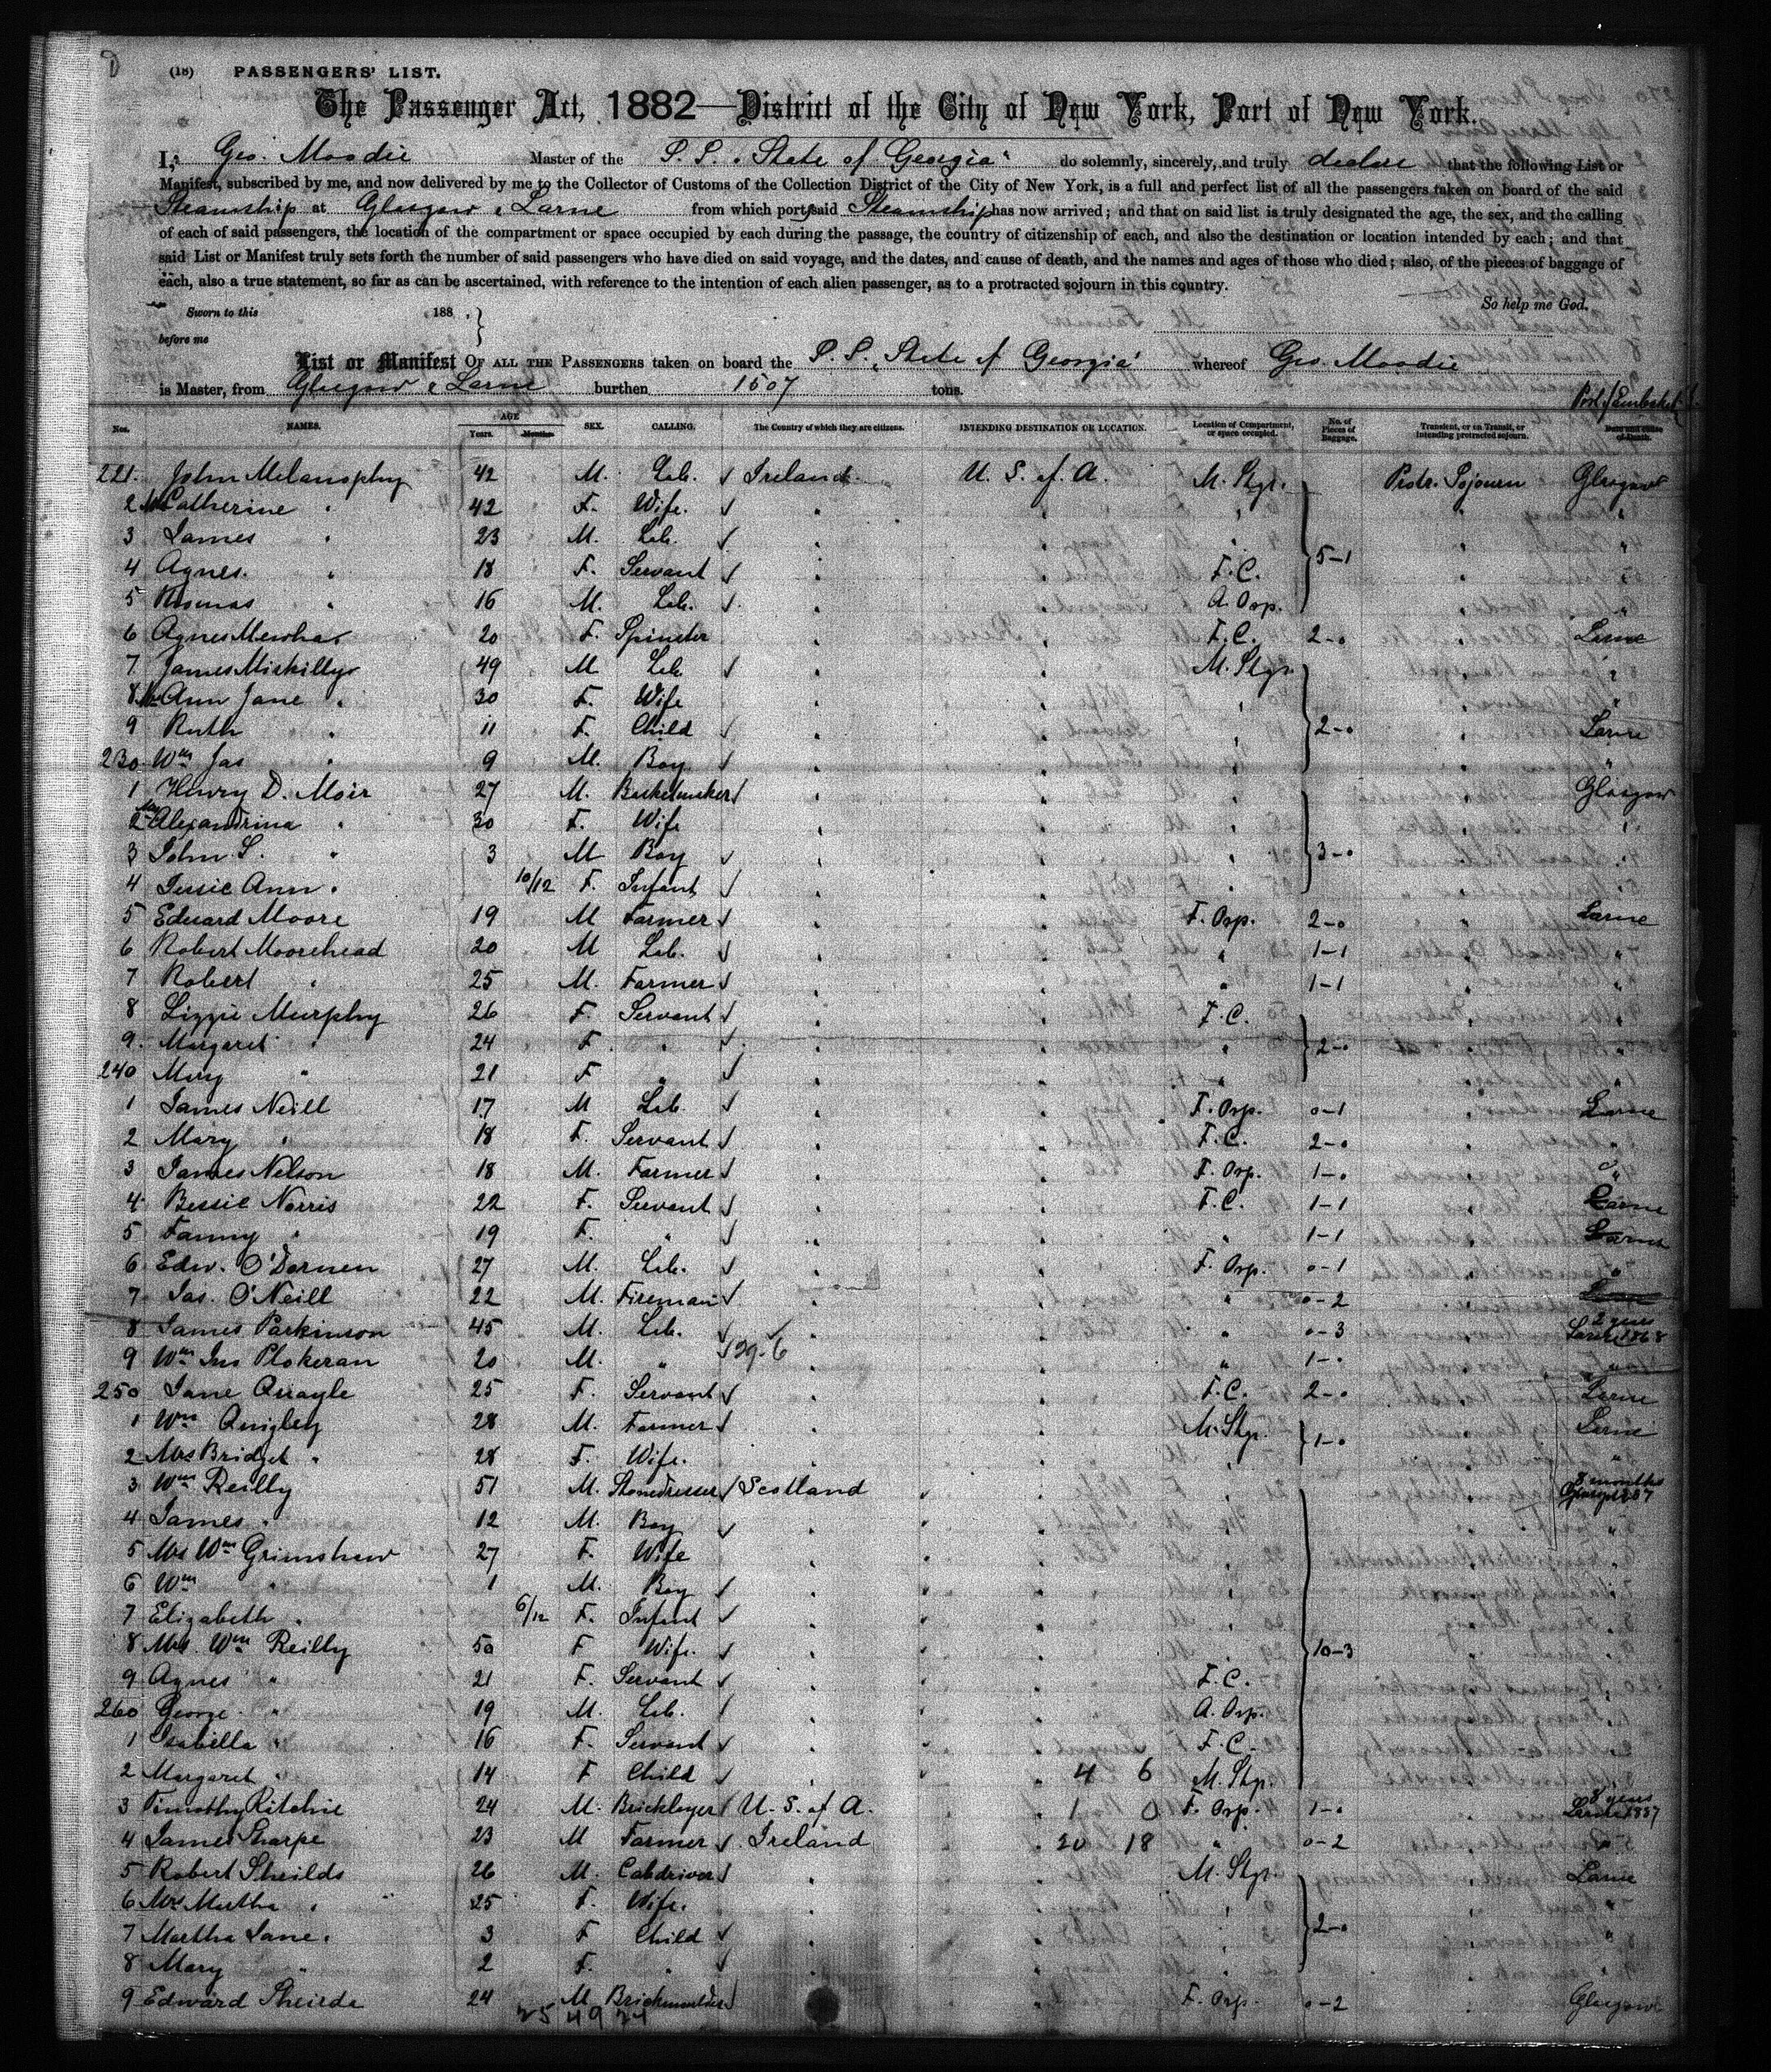 (18) PASSENGERS' LIST.
The Passenger Act, 1882—District of the City of New York, Port of New York.
I, Geo. Moodie Master of the S.S. "State of Georgia" do solemnly, sincerely, and truly declare that the following List or
Manifest, subscribed by me, and now delivered by me to the Collector of Customs of the Collection District of the City of New York, is a full and perfect list of all the passengers taken on board of the said
Steamship at Glasgow & Larne from which port said Steamship has now arrived; and that on said list is truly designated the age, the sex, and the calling
of each of said passengers, the location of the compartment or space occupied by each during the passage, the country of citizenship of each, and also the destination or location intended by each; and that
said List or Manifest truly sets forth the number of said passengers who have died on said voyage, and the dates, and cause of death, and the names and ages of those who died; also, of the pieces of baggage of
each, also a true statement, so far as can be ascertained, with reference to the intention of each alien passenger, as to a protracted sojourn in this country.
So help me God.
Sworn to this 188 .
before me
List or Manifest OF ALL THE PASSENGERS taken on board the S.S. "State of Georgia" whereof Geo. Moodie
is Master, from Glasgow & Larne burthen 1507 tons.
Nos. NAMES. AGE Years. Months. SEX. CALLING. The Country of which they are citizens. INTENDING DESTINATION OR LOCATION. Location of Compartment, or space occupied. No. of Pieces of Baggage. Transient, or in Transit, or intending protracted sojourn. Date and cause of Death.
221. John Melanophy 42 M. Lab. Ireland U. S. of A. M. Stge. Protr. Sojourn Glasgow
2 Mrs Catherine " 42 F. Wife. " " " " "
3 James " 23 M. Lab. " " " 5-1 " "
4 Agnes. " 18 F. Servant " " F.C. " "
5 Thomas " 16 M. Lab. " " A. Orp. " "
6 Agnes 20 F. Spinster " " F.C. 2-0 " Larne
7 James Miskilly 49 M Lab " " M. Stge. " "
8 Mrs Ann Jane " 30 F. Wife " " " " "
9 Ruth " 11 F. Child " " " 2-0 " Larne
230. Wm Jas " 9 M. Boy " " " " "
1 Henry D. Moir 27 M. Basketmaker " " " " Glasgow
2 Mrs Alexandrina " 30 F. Wife " " " " "
3 John S. " 3 M Boy " " " 3-0 " "
4 Jessie Ann " 10/12 F. Infant " " " " "
5 Edward Moore 19 M Farmer " " F. Orp. 2-0 " Larne
6 Robert Moorehead 20 M Lab. " " " 1-1 " "
7 Robert " 25 M. Farmer " " " 1-1 " "
8 Lizzie Murphy 26 F. Servant " " F.C. " "
9. Margaret " 24 F " " " " 2-0 " "
240 Mary " 21 F " " " " " "
1 James Neill 17 M Lab " " F. Orp. 0-1 " Larne
2 Mary " 18 F. Servant " " F.C. 2-0 " "
3 James Nelson 18 M. Farmer " " F. Orp. 1-0 " "
4 Bessie Norris 22 F. Servant " " F.C. 1-1 " Larne
5 Fanny " 19 F. " " " " 1-1 " Larne
6 Edw. 27 M. Lab. " " F. Orp. 0-1 " "
7 Jas. O'Neill 22 M. Fireman " " " 0-2 " Larne
8 James Parkinson 45 M. Lab. " " " 0-3 " 2 years Larne 1868
9 Wm Jno 20 M. " 29-6 " " " 1-0 " "
250 Jane Quayle 25 F. Servant " " F.C. 2-0 " Larne
1 Wm Quigley 28 M. Farmer " " M. Stge. 1-0 " Larne
2 Mrs Bridget " 28 F. Wife. " " " " "
3 Wm Reilly 51 M. Stonedresser Scotland " " " 8 months
4 James " 12 M. Boy " " " " "
5 Mrs Wm Grimshaw 27 F. Wife " " " " "
6 Wm " 1 M. Boy " " " " "
7 Elizabeth " 6/12 F. Infant " " " " "
8 Mrs. Wm Reilly 50 F Wife. " " " 10-3 " "
9 Agnes " 21 F. Servant " " F.C. " "
260 George " 19 M. Lab. " " A. Orp. " "
1 Isabella " 16 F. Servant " " F.C. " "
2 Margaret " 14 F Child " " 4 6 M. Stge. " "
3 Timothy Ritchie 24 M. Bricklayer U. S. of A. " 1 0 F. Orp. 1-0 " 8 years Larne 1887
4 James Sharpe 23 M Farmer Ireland " 20 18 " 0-2 " "
5 Robert Sheilds 26 M. Cabdriver " " M. Stge. " Larne
6 Mrs Martha " 25 F. Wife. " " " " "
7 Martha Jane " 3 F Child " " " 2-0 " "
8 Mary " 2 F. " " " " " "
9 Edward Sheilds 24 M Brickmoulder " " F. Orp. 0-2 " Glasgow
25 49 24